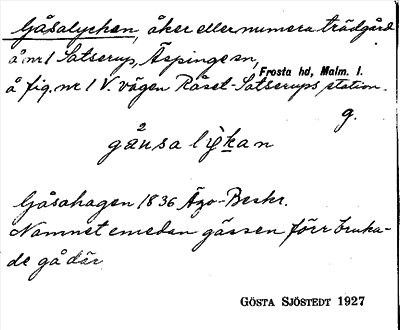 Gåsalycken, åker eller numera trädgård
å nr 1 Satserup, Äspinge sn,
Frosta hd, Malm. l.
å fig. nr 1 V. vägen Råset-Satserups station.
g.
gåusa lykan
Gåsahagen 1836 Ägo-Beskr.
Namnet emedan gässen förr bruka-
de gå där
GÖSTA SJÖSTEDT 1927